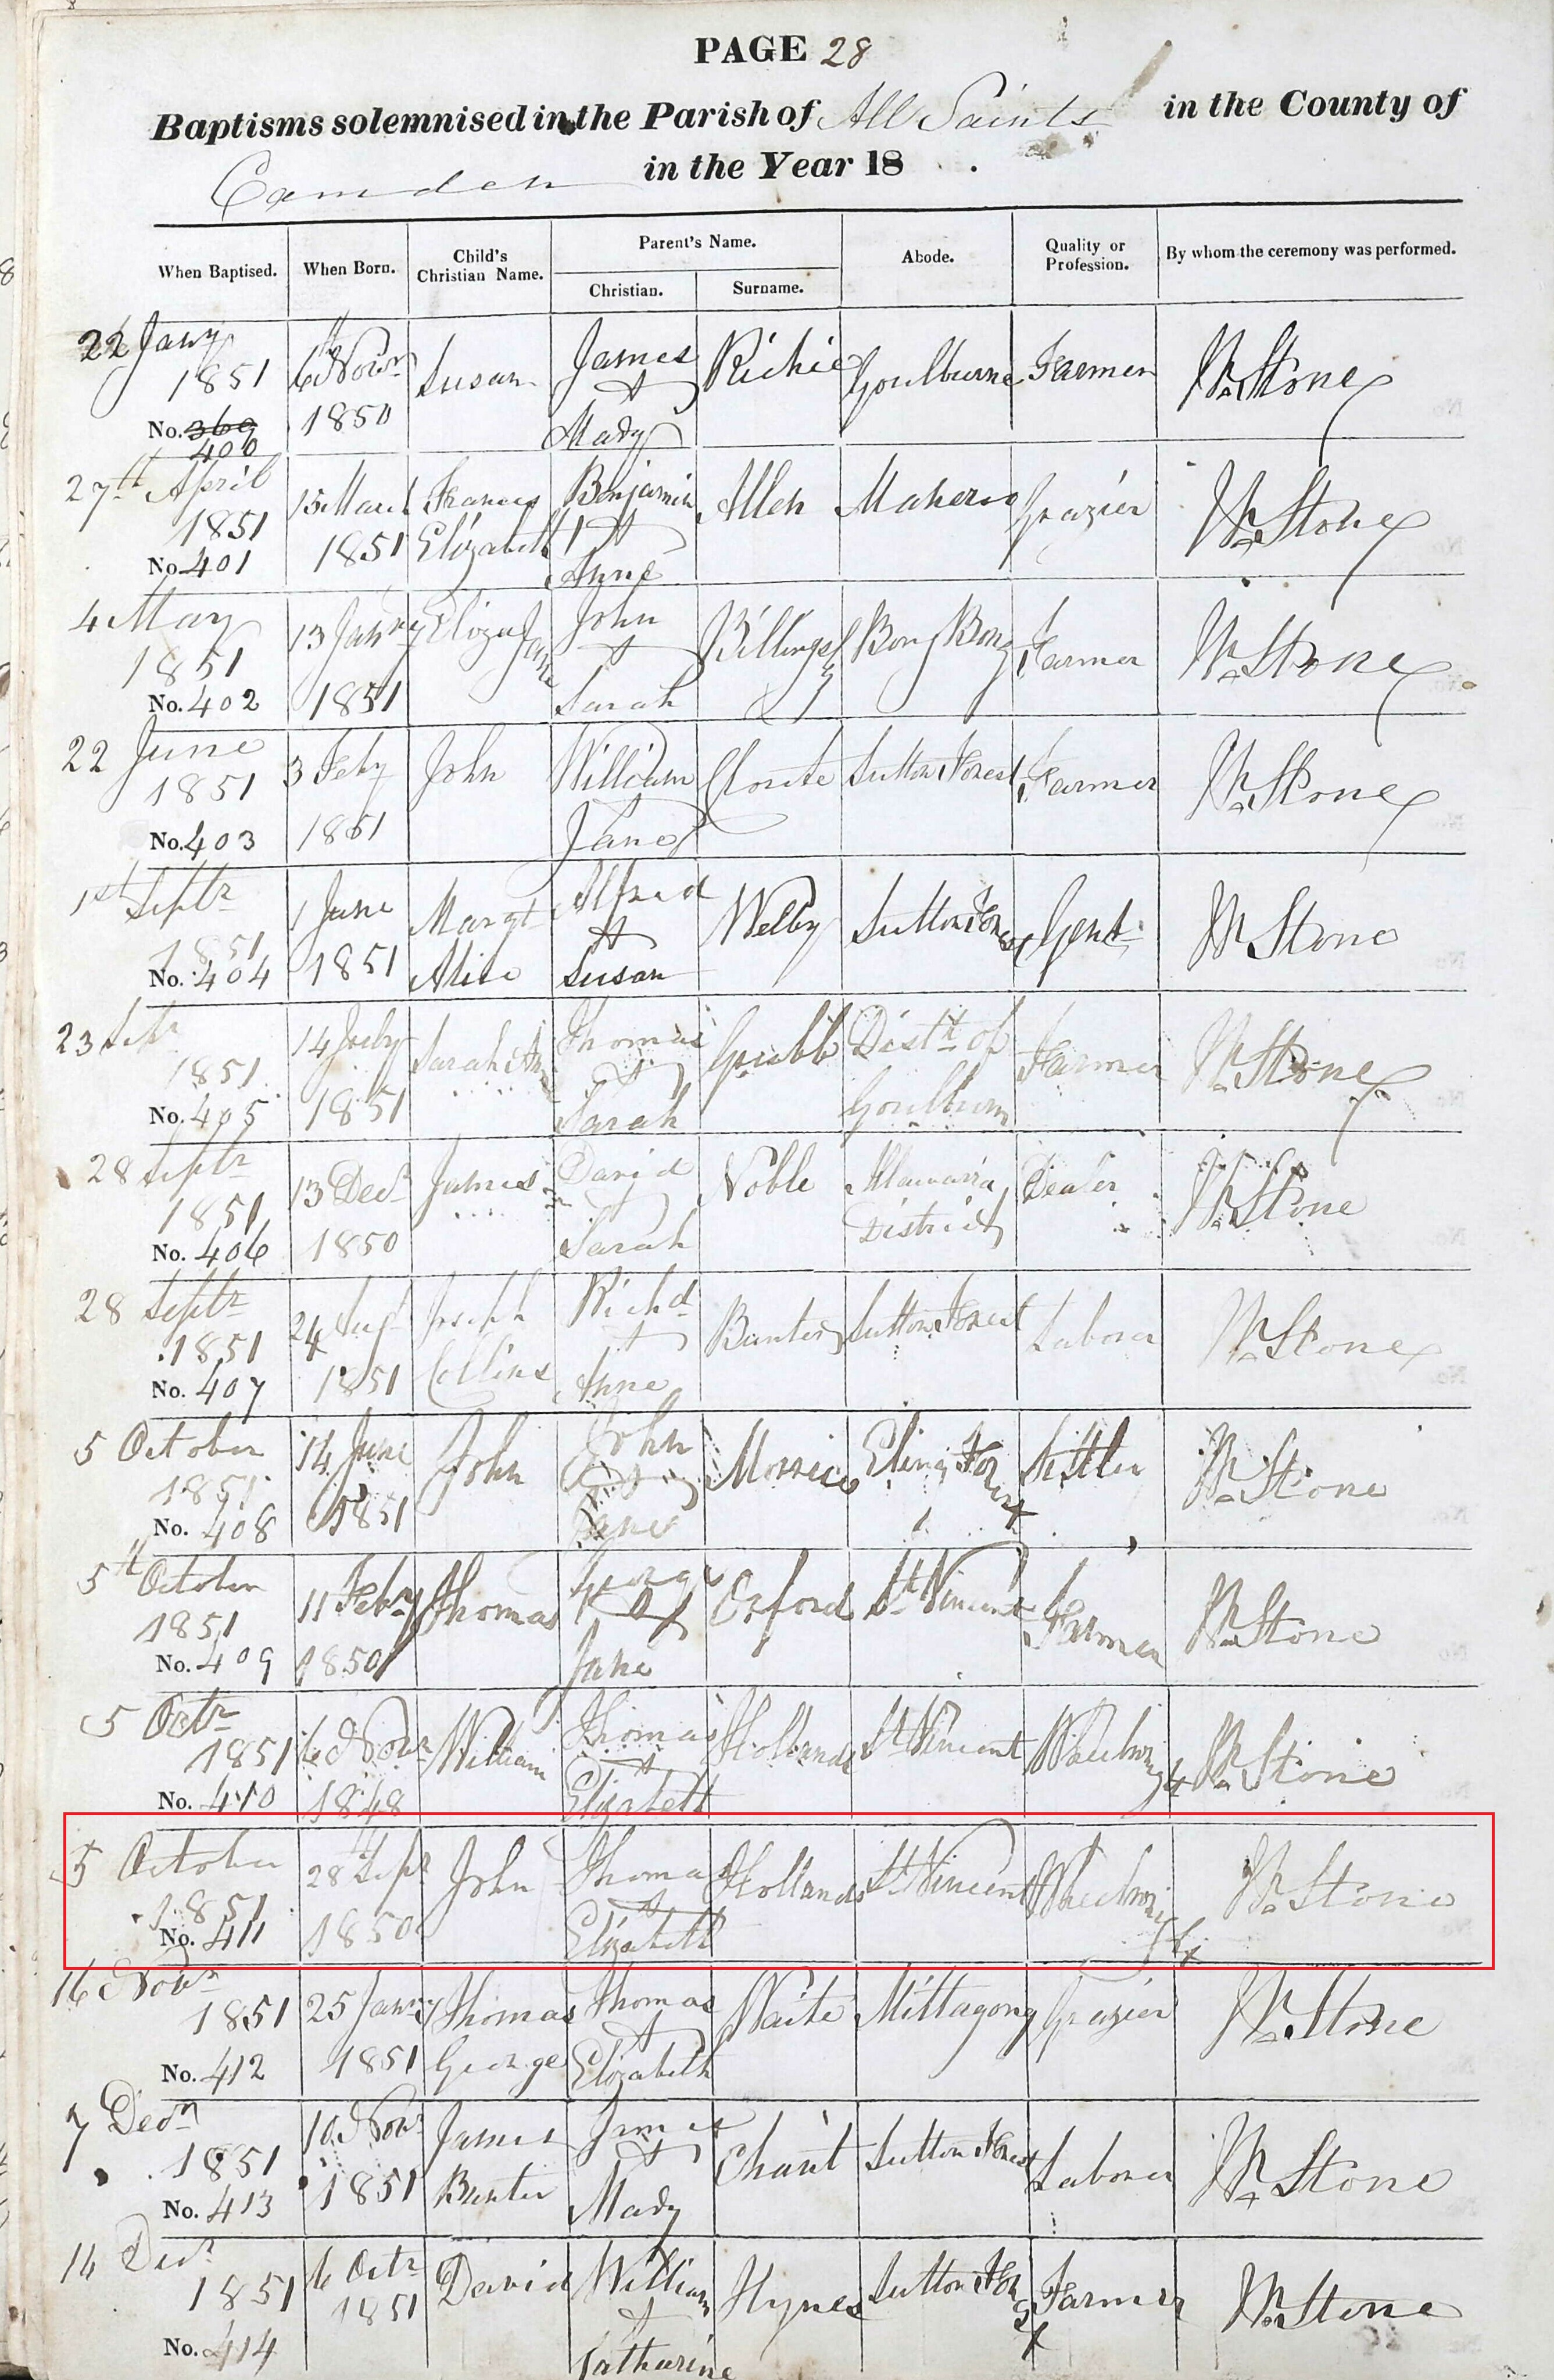 PAGE 28
Baptisms solemnised in the Parish of All Saints in the County of
Camden in the Year 18 .
When Baptised. When Born. Child's Christian Name. Parent's Name. Christian. Surname. Abode. Quality or Profession. By whom the ceremony was performed.
22 Jany 6th Novr Susan James Richie Goulburne Farmer Wm Stone
1851 1850 &
No. 369 Mary
400
27th April 15 March Frances Benjamin Allen Grazier Wm Stone
1851 1851 Elizabeth &
No. 401 Anne
4 May 13 Janry Eliza Jane John Billings Bong Bong Farmer Wm Stone
1851 &
No. 402 1851 Sarah
22 June 3 Feby John William Sutton Forest Farmer Wm Stone
1851
No. 403 1851 Jane
1st Septr 1 June Margt Alfred Welby Sutton Forest Gent Wm Stone
1851 &
No. 404 1851 Alice Susan
23 Sepr 14 July Sarah An Thomas Grubb Distt of Farmer Wm Stone
1851 &
No. 405 1851 Sarah Goulburn
28 Septr 13 Decr James David Noble Illawarra Dealer Wm Stone
1851 & District
No. 406 1850 Sarah
28 Septr 24 Augt Joseph Richd Bunter Sutton Forest Laborer Wm Stone
1851 &
No. 407 1851 Collins Anne
5 October 14 June John John Morrice Settler Wm Stone
1851 &
No. 408 1851 Jane
5th October 11 Febry Thomas George Oxford St Vincent Farmer Wm Stone
1851 &
No. 409 1850 Jane
5 Octr 6 Novr William Thomas Hollands St Vincent Wheelwright Wm Stone
1851 &
No. 410 1848 Elizabeth
5 October 28 Sepr John Thomas Hollands St Vincent Wheelwright Wm Stone
1851 &
No. 411 1850 Elizabeth
16 Novr 25 Janry Thomas Thomas Waite Mittagong Grazier Wm Stone
1851 &
No. 412 1851 George Elizabeth
7 Decr 10 Novr James James Chant Sutton Forest Laborer Wm Stone
1851 &
No. 413 1851 Bunter Mary
14 Decr 6 Octr David William Hynes Sutton Forest Farmer Wm Stone
1851 1851 &
No. 414 Catharine